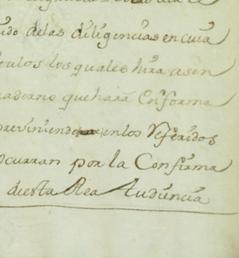 ido delas diligencias en cuia
culos los quales hira asen
uaderno que hara Conforma
previniendo en los Referidos
ocurran por la Confirma
de esta Rea Audiencia